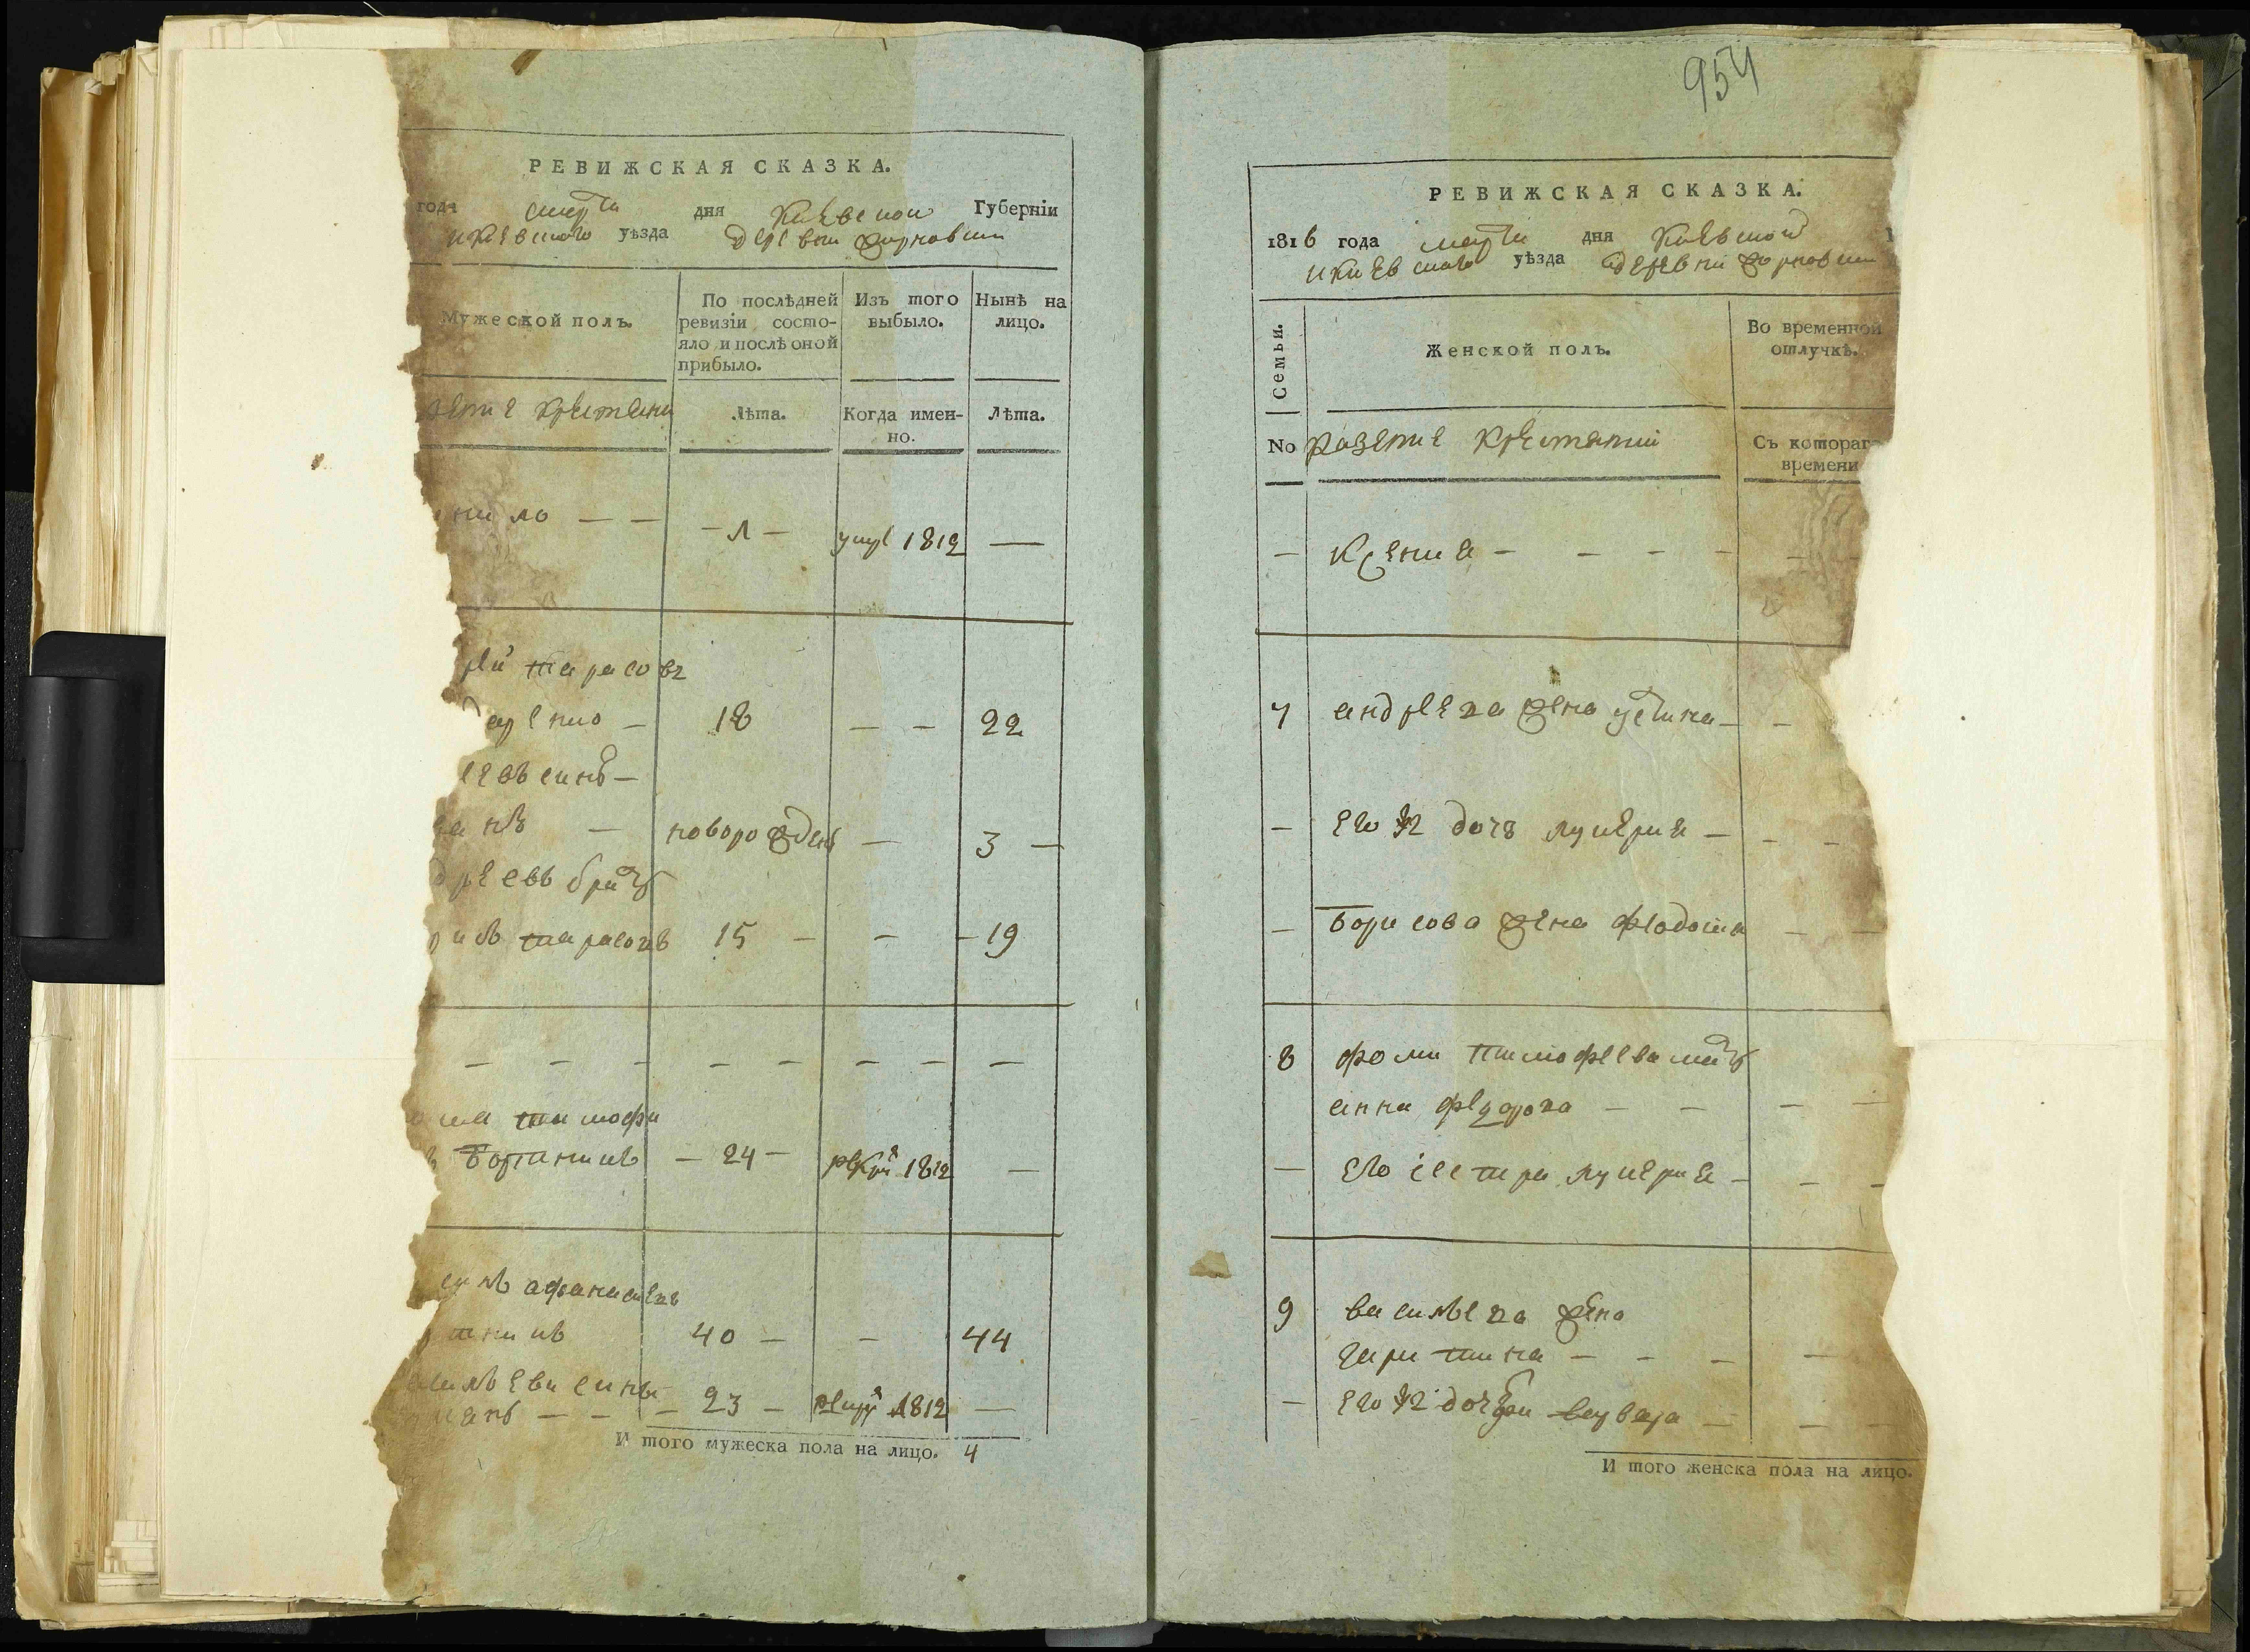 РЕВИЖСКАЯ СКАЗКА.
года марта дня Киевской Губерніи
икиевского уѣзда деревни
Мужеской полъ.
По послѣдней ревизіи состо-
яло и послѣ оной
прибыло.
Изъ того
выбыло.
Нынѣ на
лицо.
Лѣта.
Когда имен-
но.
Лѣта.
нило — — — л — умре 1812 —
рей тарасовъ
даренко — 18 — — 22
еевъ синъ —
— новорожденъ — 3 —
дреевъ братъ
рисъ тарасовъ 15 — — — 19
— — — — — — — —
ома тимофи
Бортникъ — 24 — рекру 1812 —
силь афанасиевъ
ртникъ 40 — — 44
сильеви сины
— — — 23 — рекру 1812 —
И того мужеска пола на лицо. 4
954
РЕВИЖСКАЯ СКАЗКА.
1816 года марта дня Киевской
икиевского уѣзда деревни
Семьи.
Женской полъ.
Во временной
отлучкѣ.
No казеніе крестяніи
Съ котораг
времени
— Ксения — — — — —
7 андреева жена устина — —
— его же дочь лукерия — — —
— Борисова жена феодосия — —
8 фоми тимофеева мать
анна федорова — — — —
— его сестра лукерия — — —
9 василева жена
харитина — — — —
— его же дочь варвара — — —
И того женска пола на лицо.